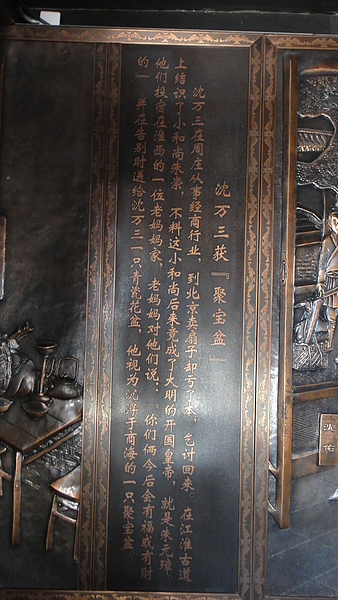 沈万三获『聚宝盆』
沈万三在周庄从事经商行业，到北京卖扇子却亏了本，乞讨回来。在江淮古道
上结识了小和尚朱崇，不料这小和尚后来竟成了大明的开国皇帝，就是朱元璋。
他们投宿在淮西的一位老妈妈家，老妈妈对他们说：『你们俩今后会有福或有财
的』并在告别时送给沈万三一只青瓷花盆，他视为沈浮于商海的一只聚宝盆
沈祐